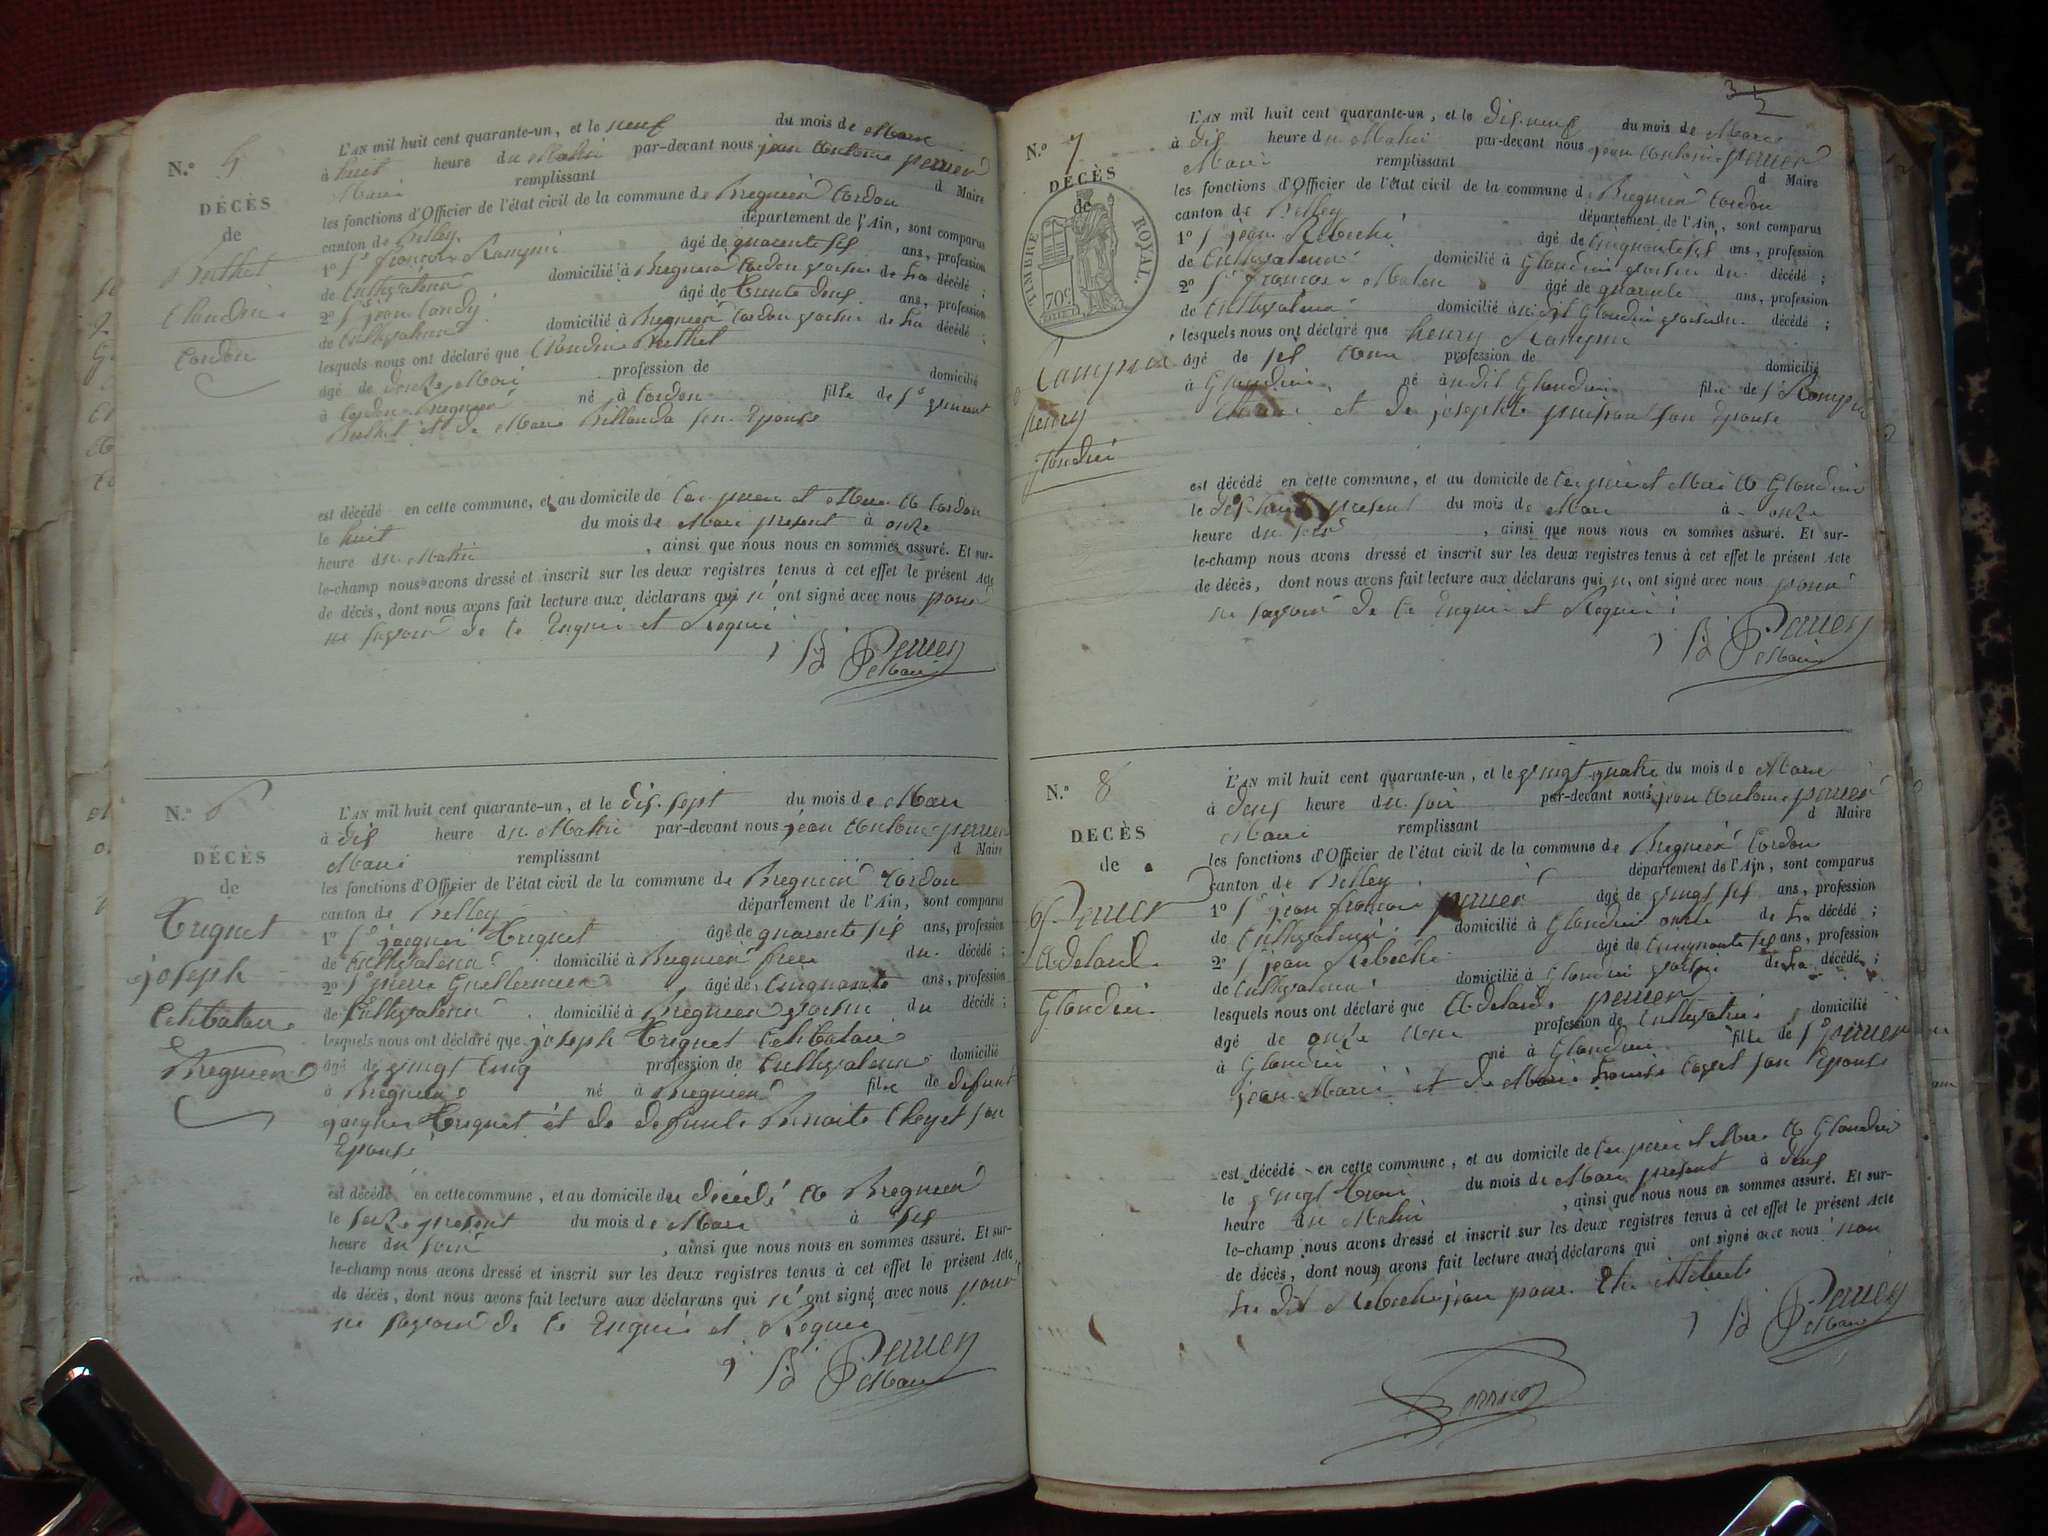 N.º 5
DÉCÈS
de
Berthet
Claudine
Cordon
L'AN mil huit cent quarante-un, et le neuf du mois de Mars
à huit heure du Matin par-devant nous jean Antoine perrier
Maire remplissant d Maire
les fonctions d'Officier de l'état civil de la commune de Bregnier Cordon
canton de Belley département de l'Ain, sont comparus
1º Sr françois Rampin âgé de quarente six ans, profession
de Cultivateur domicilié à Bregnier Cordon voisin de la décédé ;
2º Sr jean âgé de trente deux ans, profession
de Cultivateur domicilié à Bregnier Cordon voisin de la décédé ;
lesquels nous ont déclaré que Claudine Berthet
âgé de douze Mois profession de domicilié
à Cordon Bregnier né à Cordon fille de Sr
Berthet et de Marie son Epouse
est décédé en cette commune, et au domicile de Ces pere et Mere a Cordon
le huit du mois de Mars present à onze
heure du Matin , ainsi que nous nous en sommes assuré. Et sur-
le-champ nous avons dressé et inscrit sur les deux registres tenus à cet effet le présent Acte
de décès, dont nous avons fait lecture aux déclarans qui n' ont signé avec nous pour
ne savoir de ce Enquis et Requis
Perrier
Maire
N.º 6
DÉCÈS
de
Triquet
joseph
Celibataire
Bregnier
L'AN mil huit cent quarante-un, et le dix sept du mois de Mars
à dix heure du Matin par-devant nous jean Antoine perrier
Maire remplissant d Maire
les fonctions d'Officier de l'état civil de la commune de Bregnier Cordon
canton de Belley département de l'Ain, sont comparus
1º Sr jacques Triquet âgé de quarente six ans, profession
de Cultivateur domicilié à Bregnier frere du décédé ;
2º Sr pierre Guillermier âgé de Cinquante ans, profession
de Cultivateur domicilié à Bregnier voisin du décédé ;
lesquels nous ont déclaré que joseph Triquet Celibataire
âgé de vingt Cinq profession de Cultivateur domicilié
à Bregnier né à Bregnier fils de defunt
Triquet et de defunte Benoite Cheyet son
Epouse
est décédé en cette commune, et au domicile du décédé a Bregnier
le seize present du mois de Mars à six
heure du soir , ainsi que nous nous en sommes assuré. Et sur-
le-champ nous avons dressé et inscrit sur les deux registres tenus à cet effet le présent Acte
de décès, dont nous avons fait lecture aux déclarans qui n' ont signé avec nous pour
ne savoir de ce Enquis et Requis
Perrier
Maire
35
N.º 7
DÉCÈS
de
TIMBRE ROYAL
70c
Rampin
henry
Glandieu
L'AN mil huit cent quarante-un, et le dix-neuf du mois de Mars
à dix heure du Matin par-devant nous jean Antoine perrier
Maire remplissant d Maire
les fonctions d'Officier de l'état civil de la commune de Bregnier Cordon
canton de Belley département de l'Ain, sont comparus
1º Sr jean Reboche âgé de Cinquante six ans, profession
de Cultivateur domicilié à Glandieu voisin du décédé ;
2º Sr françois âgé de quarente ans, profession
de Cultivateur domicilié à dit Glandieu voisin du décédé ;
lesquels nous ont déclaré que henry Rampin
âgé de six ans profession de domicilié
à Glandieu né à dit Glandieu fils de Sr Rampin
et de josephte son Epouse
est décédé en cette commune, et au domicile de Ces pere et Mere a Glandieu
le dix huit present du mois de Mars à onze
heure du soir , ainsi que nous nous en sommes assuré. Et sur-
le-champ nous avons dressé et inscrit sur les deux registres tenus à cet effet le présent Acte
de décès, dont nous avons fait lecture aux déclarans qui n' ont signé avec nous pour
ne savoir de ce Enquis et Requis
Perrier
Maire
N.º 8
DECÈS
de
Perrier
Adelaid
Glandieu
L'AN mil huit cent quarante-un, et le vingt quatre du mois de Mars
à deux heure du soir par-devant nous jean Antoine perrier
Maire remplissant d Maire
les fonctions d'Officier de l'état civil de la commune de Bregnier Cordon
canton de Belley département de l'Ain, sont comparus
1º Sr jean françois perrier âgé de vingt six ans, profession
de Cultivateur domicilié à Glandieu oncle de la décédé ;
2º Sr jean Reboche âgé de Cinquante six ans, profession
de Cultivateur domicilié à Glandieu voisin de la décédé ;
lesquels nous ont déclaré que Adelaide perrier
âgé de onze profession de Cultivatrice domicilié
à Glandieu né à Glandieu fille de Sr perrier
jean Marie et de Marie son Epouse
est décédé en cette commune, et au domicile de Ces pere et Mere a Glandieu
le vingt trois du mois de Mars present à deux
heure du Matin , ainsi que nous nous en sommes assuré. Et sur-
le-champ nous avons dressé et inscrit sur les deux registres tenus à cet effet le présent Acte
de décès, dont nous avons fait lecture aux déclarans qui ont signé avec nous non
le dit Reboche pour
Perrier
Maire